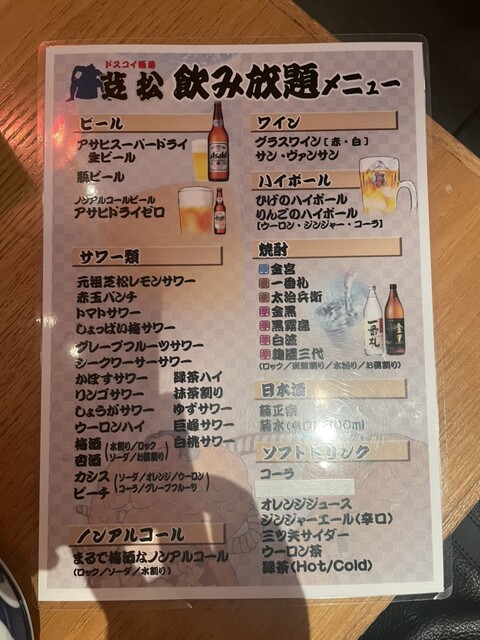 ドスコイ酒場
芝松 飲み放題メニュー
ビール
アサヒスーパードライ
生ビール
瓶ビール
ノンアルコールビール
アサヒドライゼロ
サワー類
元祖芝松レモンサワー
赤玉パンチ
トマトサワー
しょっぱい梅サワー
グレープフルーツサワー
シークワーサーサワー
かぼすサワー 緑茶ハイ
リンゴサワー 抹茶割り
しょうがサワー ゆずサワー
ウーロンハイ 巨峰サワー
梅酒 (水割り/ロック 白桃サワー
杏酒 ソーダ/お湯割り)
カシス (ソーダ/オレンジ/ウーロン
ピーチ コーラ/グレープフルーツ)
ノンアルコール
まるで梅酒なノンアルコール
(ロック/ソーダ/水割り)
ワイン
グラスワイン[赤・白]
サン・ヴァンサン
ハイボール
ひげのハイボール
りんごのハイボール
[ウーロン・ジンジャー・コーラ]
焼酎
金宮
一番札
太治兵衛
金黒
黒霧島
白波
麹屋三代
(ロック/炭酸割り/水割り/お湯割り)
日本酒
菊正宗
菊水(辛口)300ml
ソフトドリンク
コーラ
オレンジジュース
ジンジャーエール(辛口)
三ツ矢サイダー
ウーロン茶
緑茶(Hot/Cold)